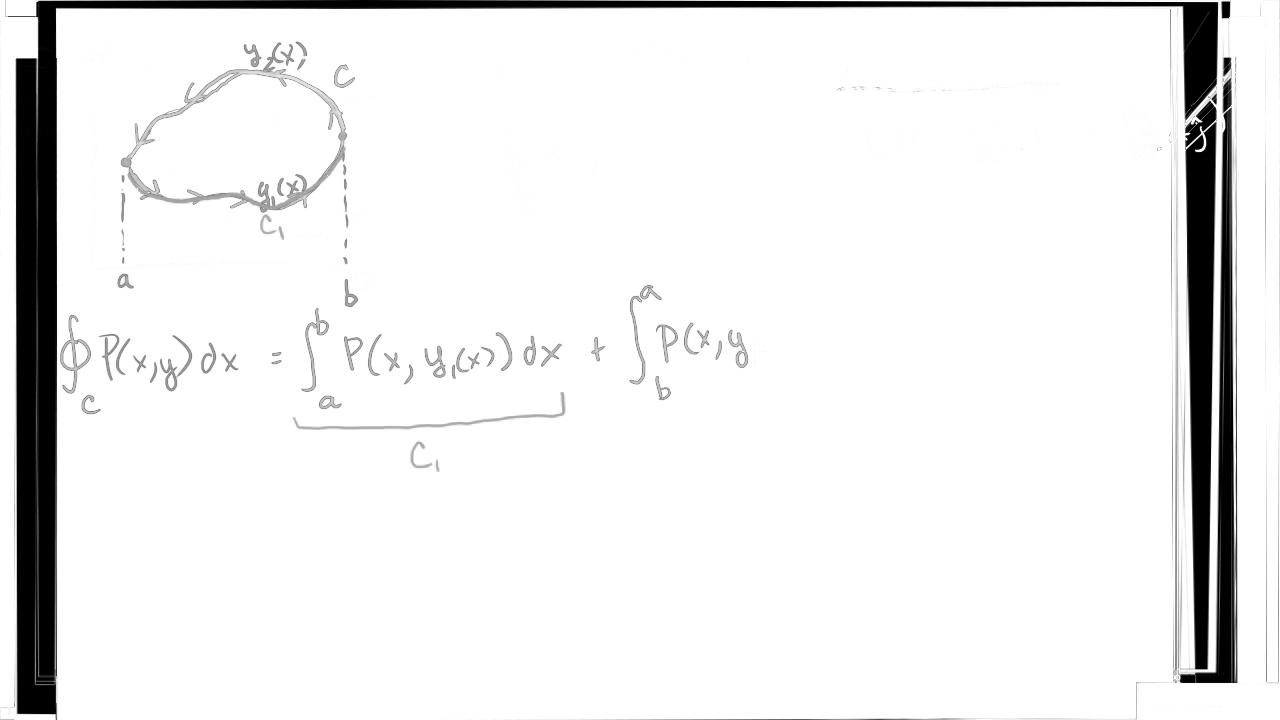 y₂(x)
C
y₁(x)
C₁
a
b
∮_C P(x,y) dx = ∫_a^b P(x, y₁(x)) dx + ∫_b^a P(x, y
C₁